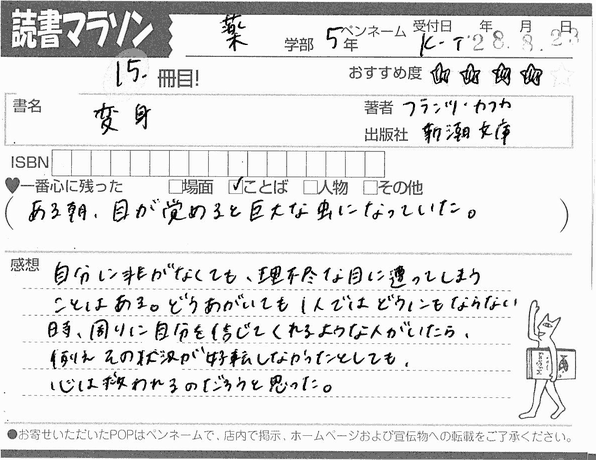 読書マラソン 薬 学部 5年 ペンネーム K-T 受付日 28年 8月 23日
15冊目! おすすめ度 ☆☆☆☆☆
書名 変身 著者 フランツ・カフカ
出版社 新潮文庫
ISBN
♥一番心に残った □場面 ☑ことば □人物 □その他
(ある朝、目が覚めると巨大な虫になっていた。)
感想
自分に非がなくても、理不尽な目に遭ってしまう
ことはある。どうあがいても1人ではどうにもならない
時、周りに自分を信じてくれるような人がいたら、
例え その状況が好転しなかったとしても、
心は救われるのだろうと思った。
●お寄せいただいたPOPはペンネームで、店内で掲示、ホームページおよび宣伝物への転載をご了承ください。